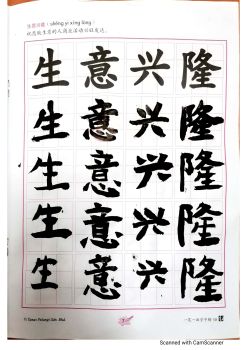 生意兴隆：shēng yì xīng lóng
祝愿做生意的人商业活动兴旺发达。
生 意 兴 隆
生 意 兴 隆
生 意 兴 隆
生 意 兴 隆
生 意 兴 隆
© Taman Pelangi Sdn. Bhd.
Scanned with CamScanner